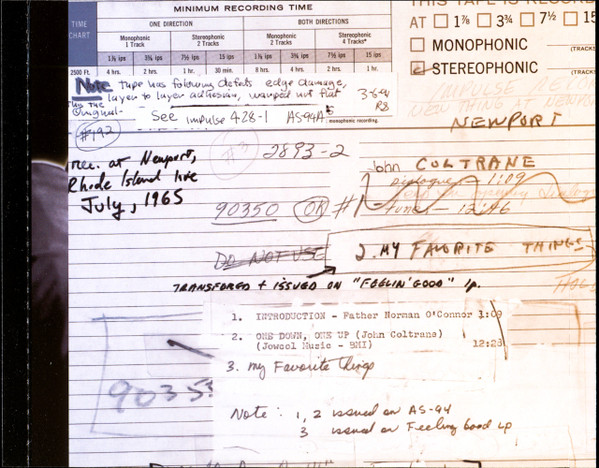 MINIMUM RECORDING TIME
THIS TAPE IS RECO
TIME CHART
ONE DIRECTION
BOTH DIRECTIONS
AT 1⅞ 3¾ 7½ 15
Monophonic 1 Track
Stereophonic 2 Tracks
Monophonic 2 Tracks
Stereophonic 4 Tracks*
MONOPHONIC (TRACKS
1⅞ ips 3¾ ips 7½ ips 15 ips 1⅞ ips 3¾ ips 7½ ips 15 ips
STEREOPHONIC (TRACK
2500 Ft. 4 hrs. 2 hrs. 1 hr. 30 min. 8 hrs. 4 hrs. 2 hrs. 1 hr.
Note tape has following defects edge damage,
layer to layer adhesion, warped not flat
This the original-
3-6-94
See impulse 428-1 AS-94A
monophonic recording
IMPULSE
NEW THING AT NEWPORT
NEWPORT
#192
#3
2893-2
rec. at Newport,
Rhode Island live
July, 1965
John COLTRANE
Dialogue - 1:09
Tune - 12:46
90350 OK #1
DO NOT USE
2. MY FAVORITE THINGS
TRANSFERED + ISSUED ON "FEELIN' GOOD" lp.
1. INTRODUCTION - Father Norman O'Connor 1:09
2. ONE DOWN, ONE UP (John Coltrane) 12:28
(Jowcol Music - BMI)
3. My Favorite Things
9035
Note: 1, 2 issued on AS-94
3 issued on Feeling Good LP